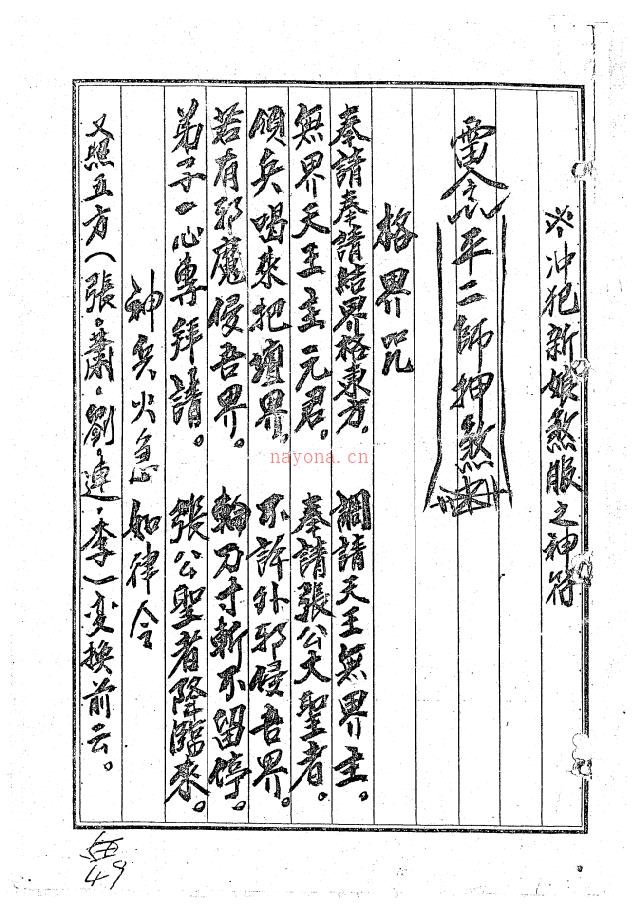 ※冲犯新娘煞服之神符
雷令平二師押煞
格界咒
奉請奉請結界格東方。調請天王無界主。
無界天王主元君。奉請張公大聖者。
領兵喝來把壇界。不許外邪侵吾界。
若有邪魔侵吾界。輪刀寸斬不留停。
弟子一心專拜請。張公聖者降臨來。
神兵火急如律令
又照五方(張.蕭.劉.連.李)变换前云。
49
nayona.cn